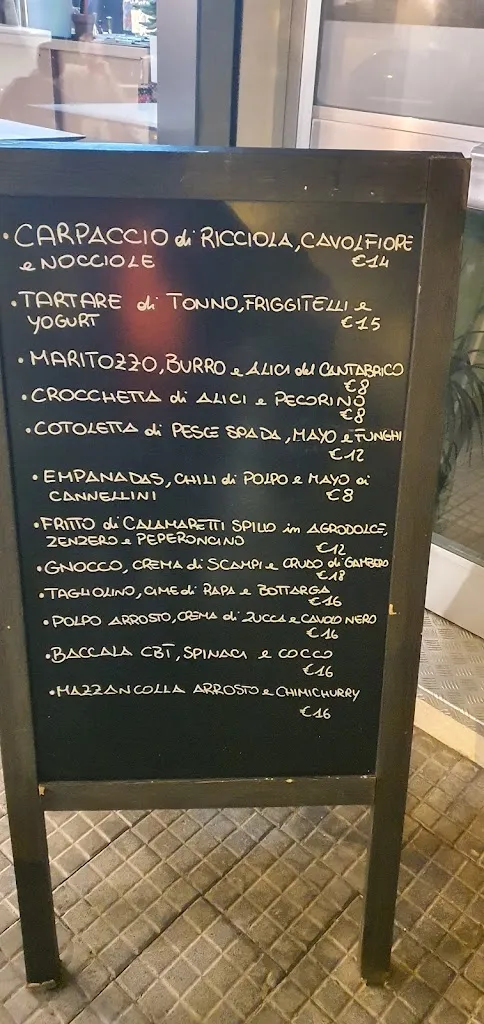 • CARPACCIO di RICCIOLA, CAVOLFIORE
e NOCCIOLE €14
• TARTARE di TONNO, FRIGGITELLI e
YOGURT €15
• MARITOZZO, BURRO e ALICI del CANTABRICO
€8
• CROCCHETTA di ALICI e PECORINO
€8
• COTOLETTA di PESCE SPADA, MAYO e FUNGHI
€12
• EMPANADAS, CHILI di POLPO e MAYO ai
CANNELLINI €8
• FRITTO di CALAMARETTI SPILLO in AGRODOLCE,
ZENZERO e PEPERONCINO €12
• GNOCCO, CREMA di SCAMPI e CRUDO di GAMBERO
€18
• TAGLIOLINO, CIME di RAPA e BOTTARGA
€16
• POLPO ARROSTO, CREMA di ZUCCA e CAVOLO NERO
€16
• BACCALA CBT, SPINACI e COCCO
€16
• MAZZANCOLLA ARROSTO e CHIMICHURRY
€16